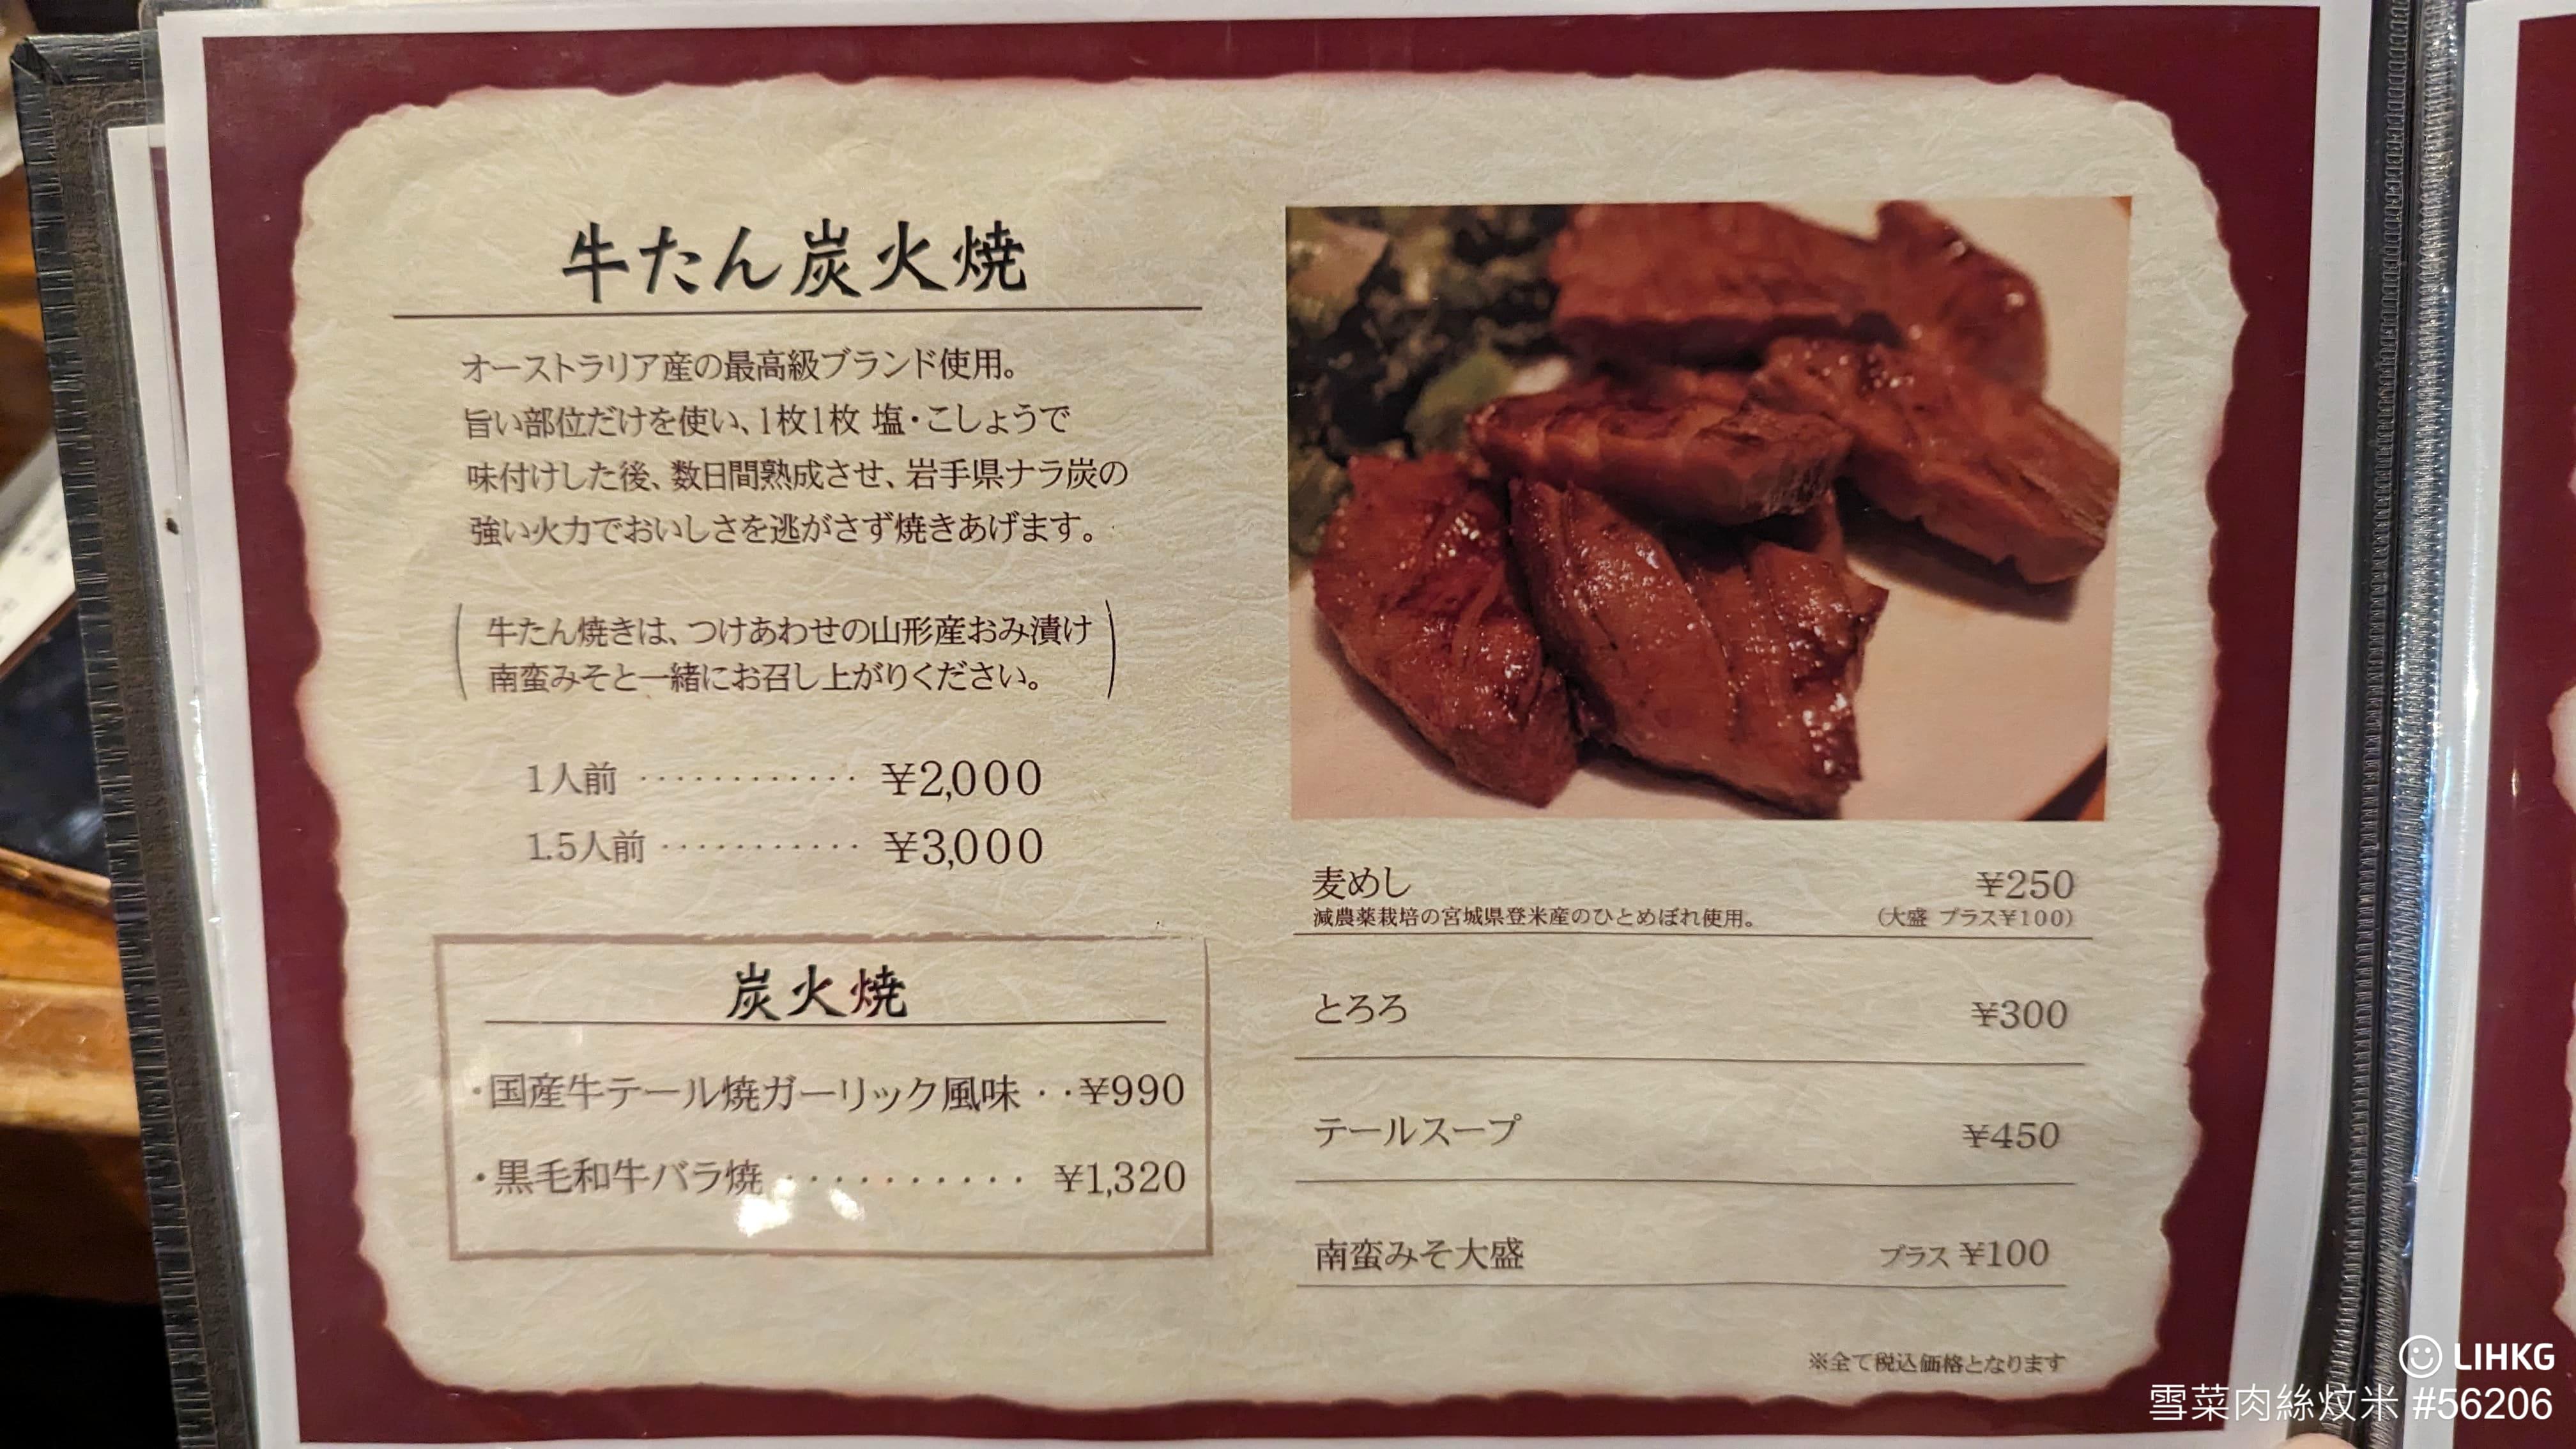 牛たん炭火焼
オーストラリア産の最高級ブランド使用。
旨い部位だけを使い、1枚1枚 塩・こしょうで
味付けした後、数日間熟成させ、岩手県ナラ炭の
強い火力でおいしさを逃がさず焼きあげます。
牛たん焼きは、つけあわせの山形産おみ漬け
南蛮みそと一緒にお召し上がりください。
1人前 ‥‥‥‥‥‥ ¥2,000
1.5人前 ‥‥‥‥‥‥ ¥3,000
炭火焼
・国産牛テール焼ガーリック風味‥¥990
・黒毛和牛バラ焼‥‥‥‥‥ ¥1,320
麦めし ¥250
減農薬栽培の宮城県登米産のひとめぼれ使用。 (大盛 プラス¥100)
とろろ ¥300
テールスープ ¥450
南蛮みそ大盛 プラス ¥100
※全て税込価格となります
LIHKG
雪菜肉絲炆米 #56206